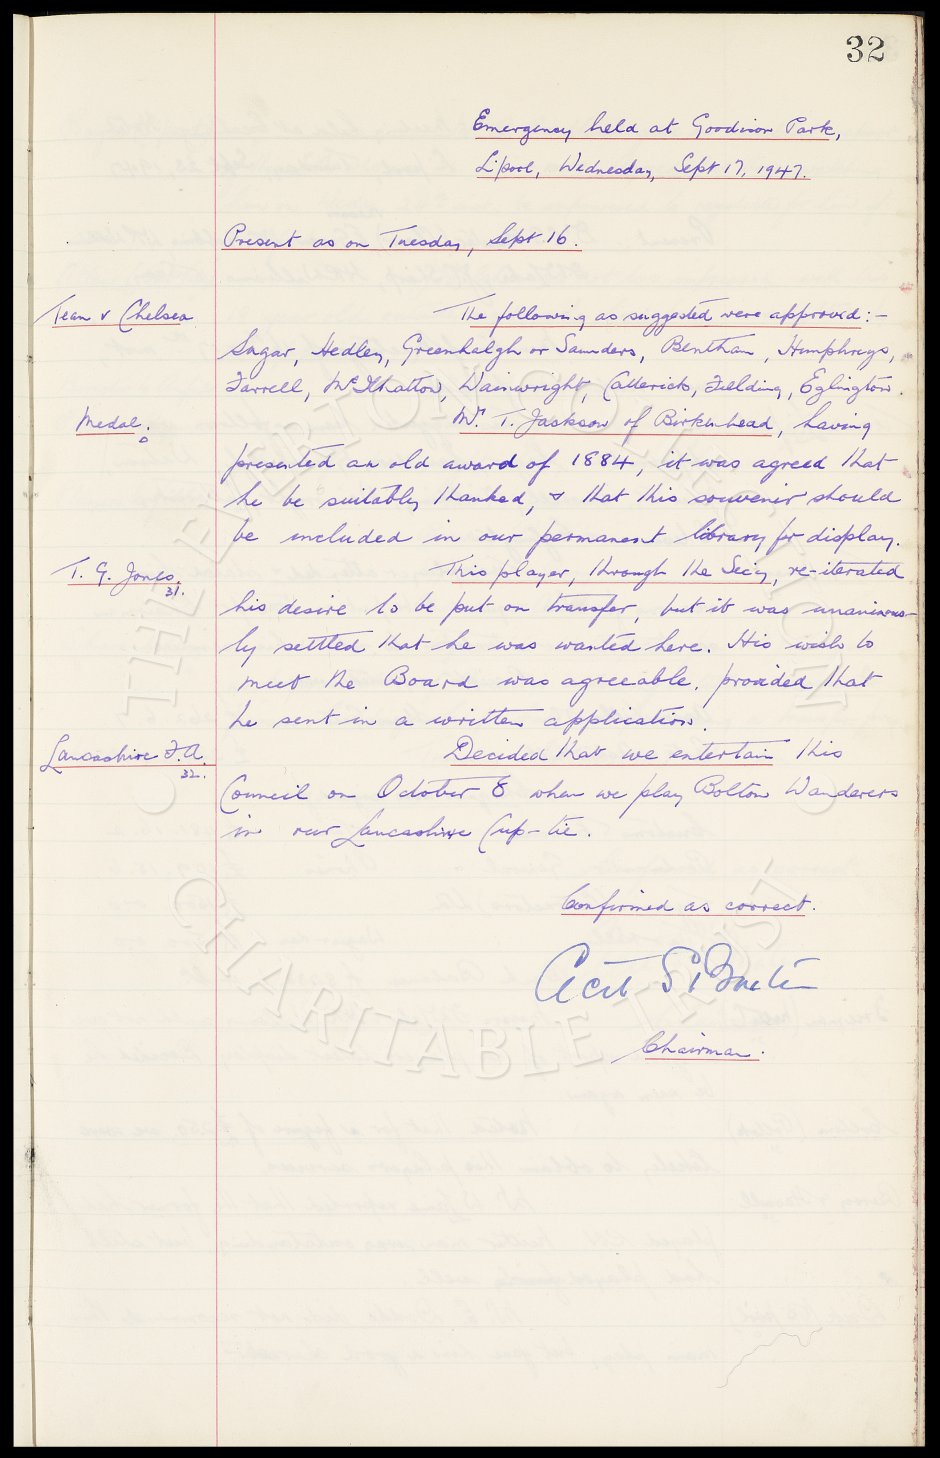 32
Emergency held at Goodison Park,
L'pool, Wednesday, Sept 17, 1947.
Present as on Tuesday, Sept 16.
Team v Chelsea
The following as suggested were approved :-
Sagar, Hedley, Greenhalgh or Saunders, Bentham, Humphreys,
Farrell, McIlhatton, Wainwright, Catterick, Fielding, Eglington.
Medal.
0
Mr. T. Jackson of Birkenhead, having
presented an old award of 1884, it was agreed that
he be suitably thanked, & that this souvenir should
be included in our permanent library for display.
T. G. Jones.
31.
This player, through the Sec'y, re-iterated
his desire to be put on transfer, but it was unanimous-
ly settled that he was wanted here. His wish to
meet the Board was agreeable, provided that
he sent in a written application.
Lancashire F.A.
32.
Decided that we entertain this
Council on October 8 when we play Bolton Wanderers
in our Lancashire Cup-tie.
Confirmed as correct.
Chairman.
THE EVERTON COLLECTION
CHARITABLE TRUST